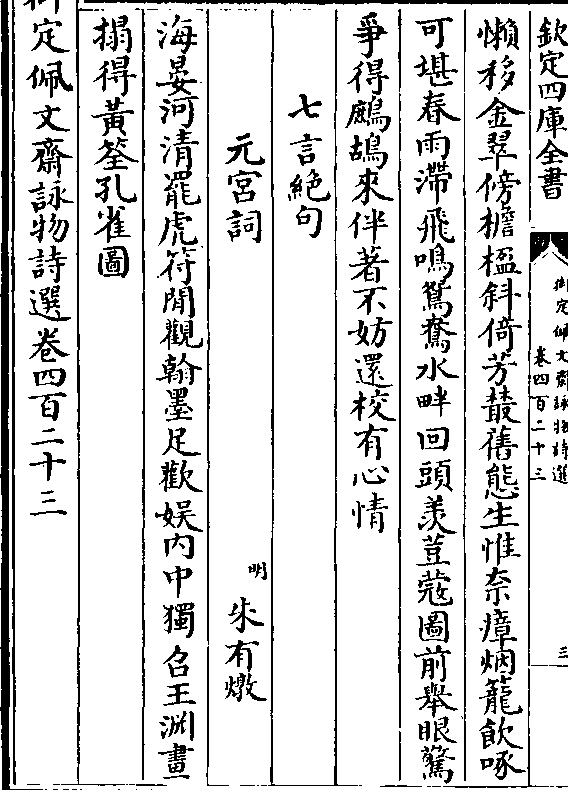 欽定四庫全書
御定佩文齋詠物詩選
卷四百二十三
三
懶移金翠傍檐楹斜倚芳叢舊態生惟奈瘴烟籠飲啄
可堪春雨滯飛鳴鴛鴦水畔回頭羨荳蔻圖前舉眼驚
爭得鷓鴣來伴著不妨還校有心情
七言絶句
元宮詞
明
朱有燉
海晏河清罷虎符閒觀翰墨足歡娱内中獨召王淵畫
搨得黃筌孔雀圖
御定佩文齋詠物詩選卷四百二十三